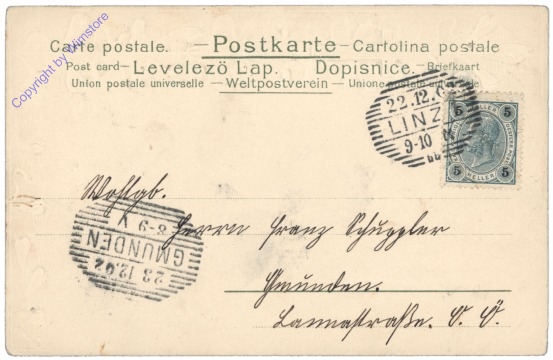 Copyright by Wimstore
Carte postale. — Postkarte — Cartolina postale
Post card — Levelező Lap. Dopisnice. — Briefkaart
Union postale universelle — Weltpostverein — Unione postale
22.12.
LINZ
9-10
5 5
HELLER
5 5
Wohlgb.
Herrn Franz Schuppler
Gmunden.
Lannastraße. O. Ö.
GMUNDEN
23.12.02
8-9 V